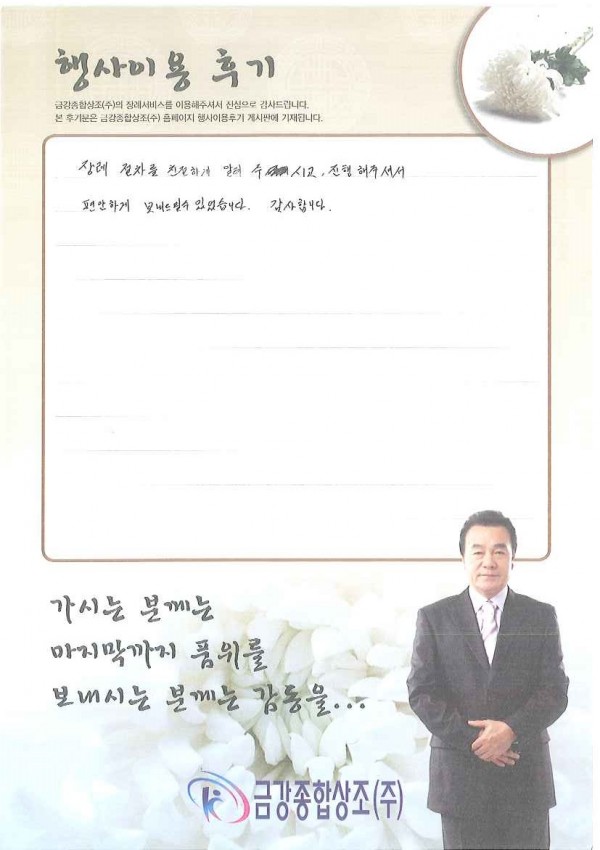 행사이용 후기
금강종합상조(주)의 장례서비스를 이용해주셔서 진심으로 감사드립니다.
본 후기분은 금강종합상조(주) 홈페이지 행사이용후기 게시판에 기재됩니다.
장례 절차를 친절하게 알려 주시고, 진행 해주셔서
편안하게 보내드릴수 있었습니다. 감사합니다.
가시는 분께는
마지막까지 품위를
보내시는 분께는 감동을...
금강종합상조(주)